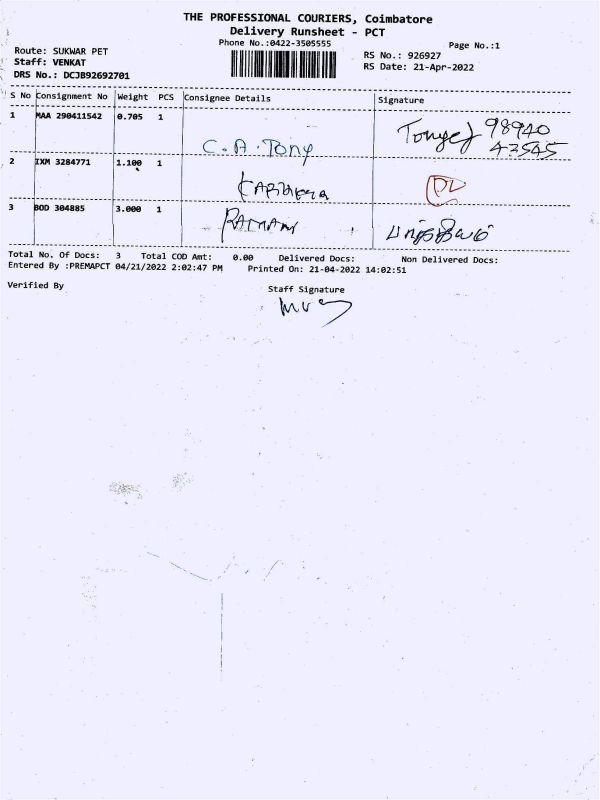 THE PROFESSIONAL COURIERS, Coimbatore
Delivery Runsheet - PCT
Phone No.:0422-3505555
Page No.:1
Route: SUKWAR PET
Staff: VENKAT
DRS No.: DCJB92692701
RS No.: 926927
RS Date: 21-Apr-2022
S No Consignment No Weight PCS Consignee Details Signature
1 MAA 290411542 0.705 1 C.A.Tony 98940
43545
2 IXM 3284771 1.100 1
3 BOD 304885 3.000 1
Total No. Of Docs: 3 Total COD Amt: 0.00 Delivered Docs: Non Delivered Docs:
Entered By :PREMAPCT 04/21/2022 2:02:47 PM Printed On: 21-04-2022 14:02:51
Verified By Staff Signature